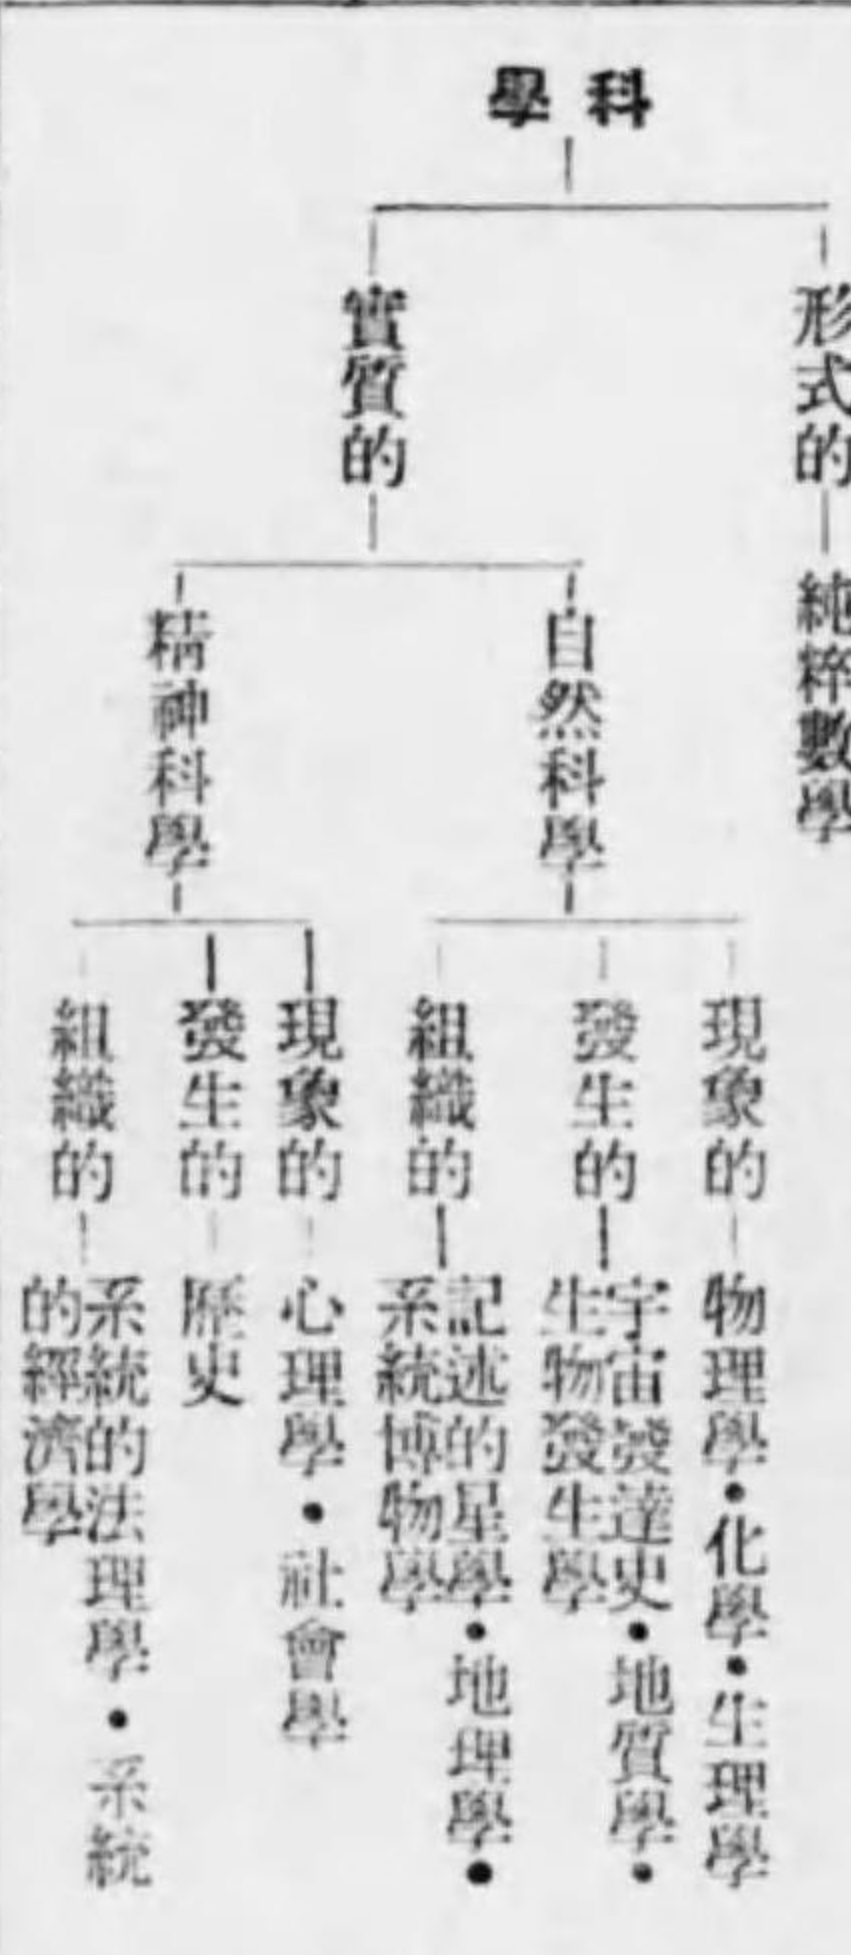 科學
形式的
純粹數學
實質的
自然科學
現象的
物理學・化學・生理學
發生的
宇宙發達史・地質學・
生物發生學
組織的
記述的星學・地理學・
系統博物學
精神科學
現象的
心理學・社會學
發生的
歷史
組織的
系統的法理學・系統
的經濟學